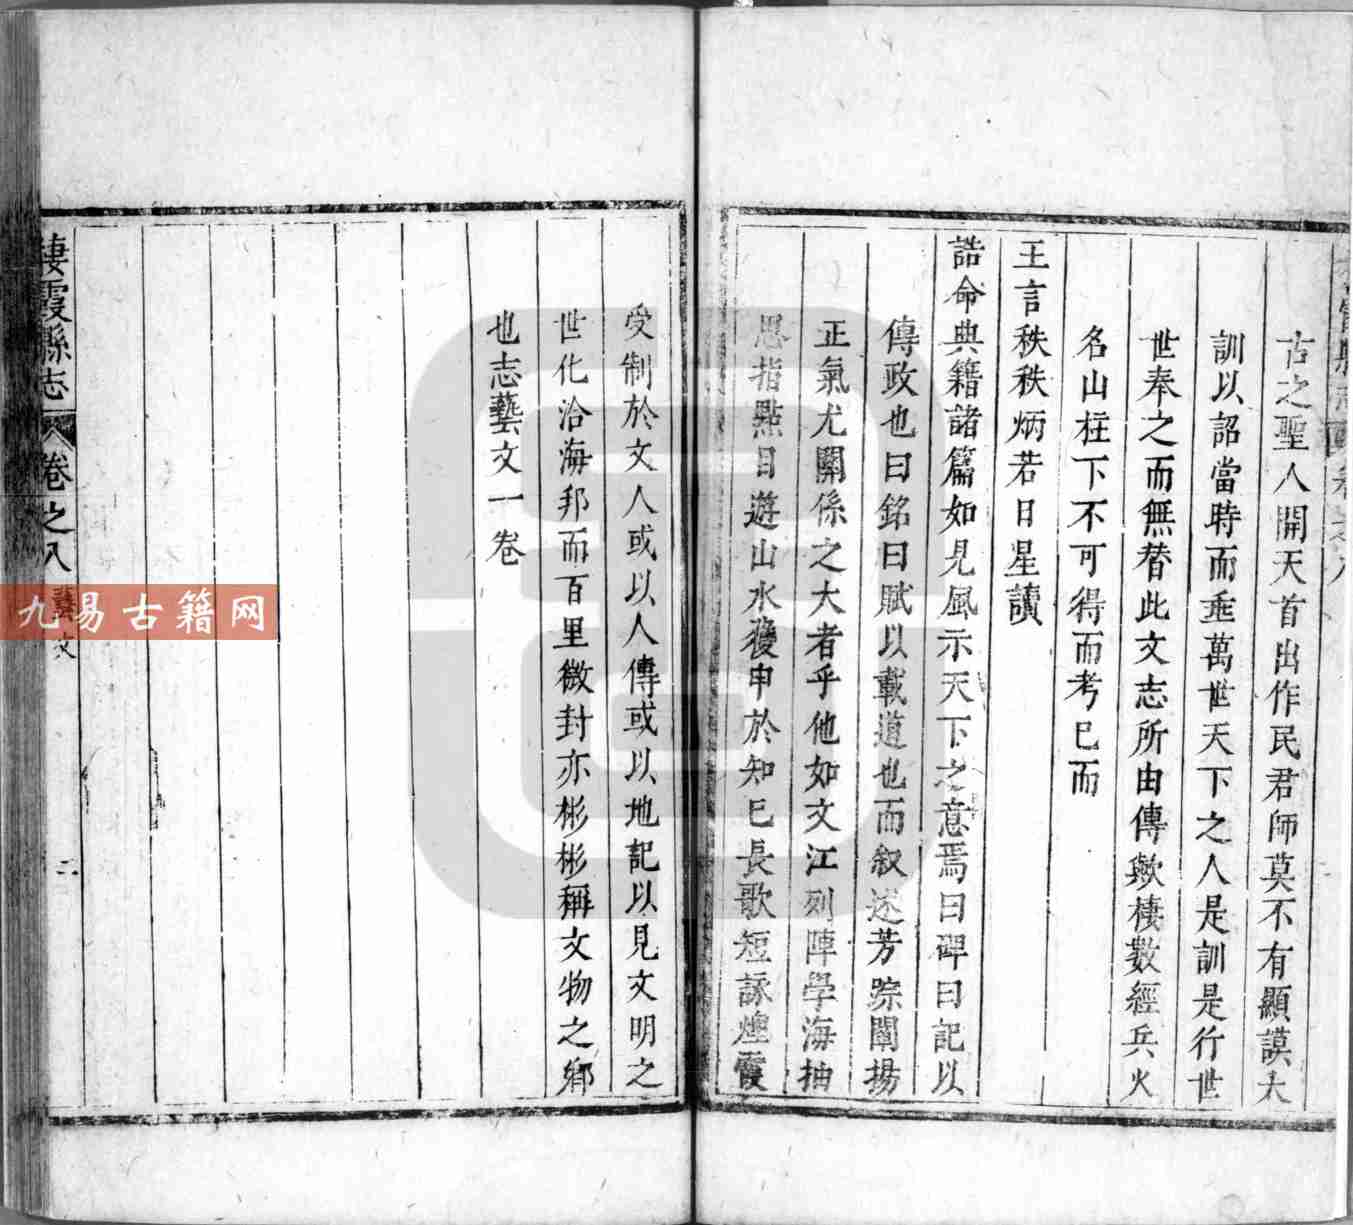 古之聖人開天首出作民君師莫不有顯謨大
訓以詔當時而垂萬世天下之人是訓是行世
世奉之而無替此文志所由傳歟棲數經兵火
名山柱下不可得而考已而
王言秩秩炳若日星讀
誥命典籍諸篇如見風示天下之意焉曰碑曰記以
傳政也曰銘曰賦以載道也而叙述芳踪闡揚
正氣尤關係之大者乎他如文江列陣學海抽
思指點目遊山水獲申於知已長歌短詠煙霞
受制於文人或以人傳或以地記以見文明之
世化洽海邦而百里微封亦彬彬稱文物之鄉
也志藝文一卷
棲霞縣志 卷之八 藝文 二
九易古籍网